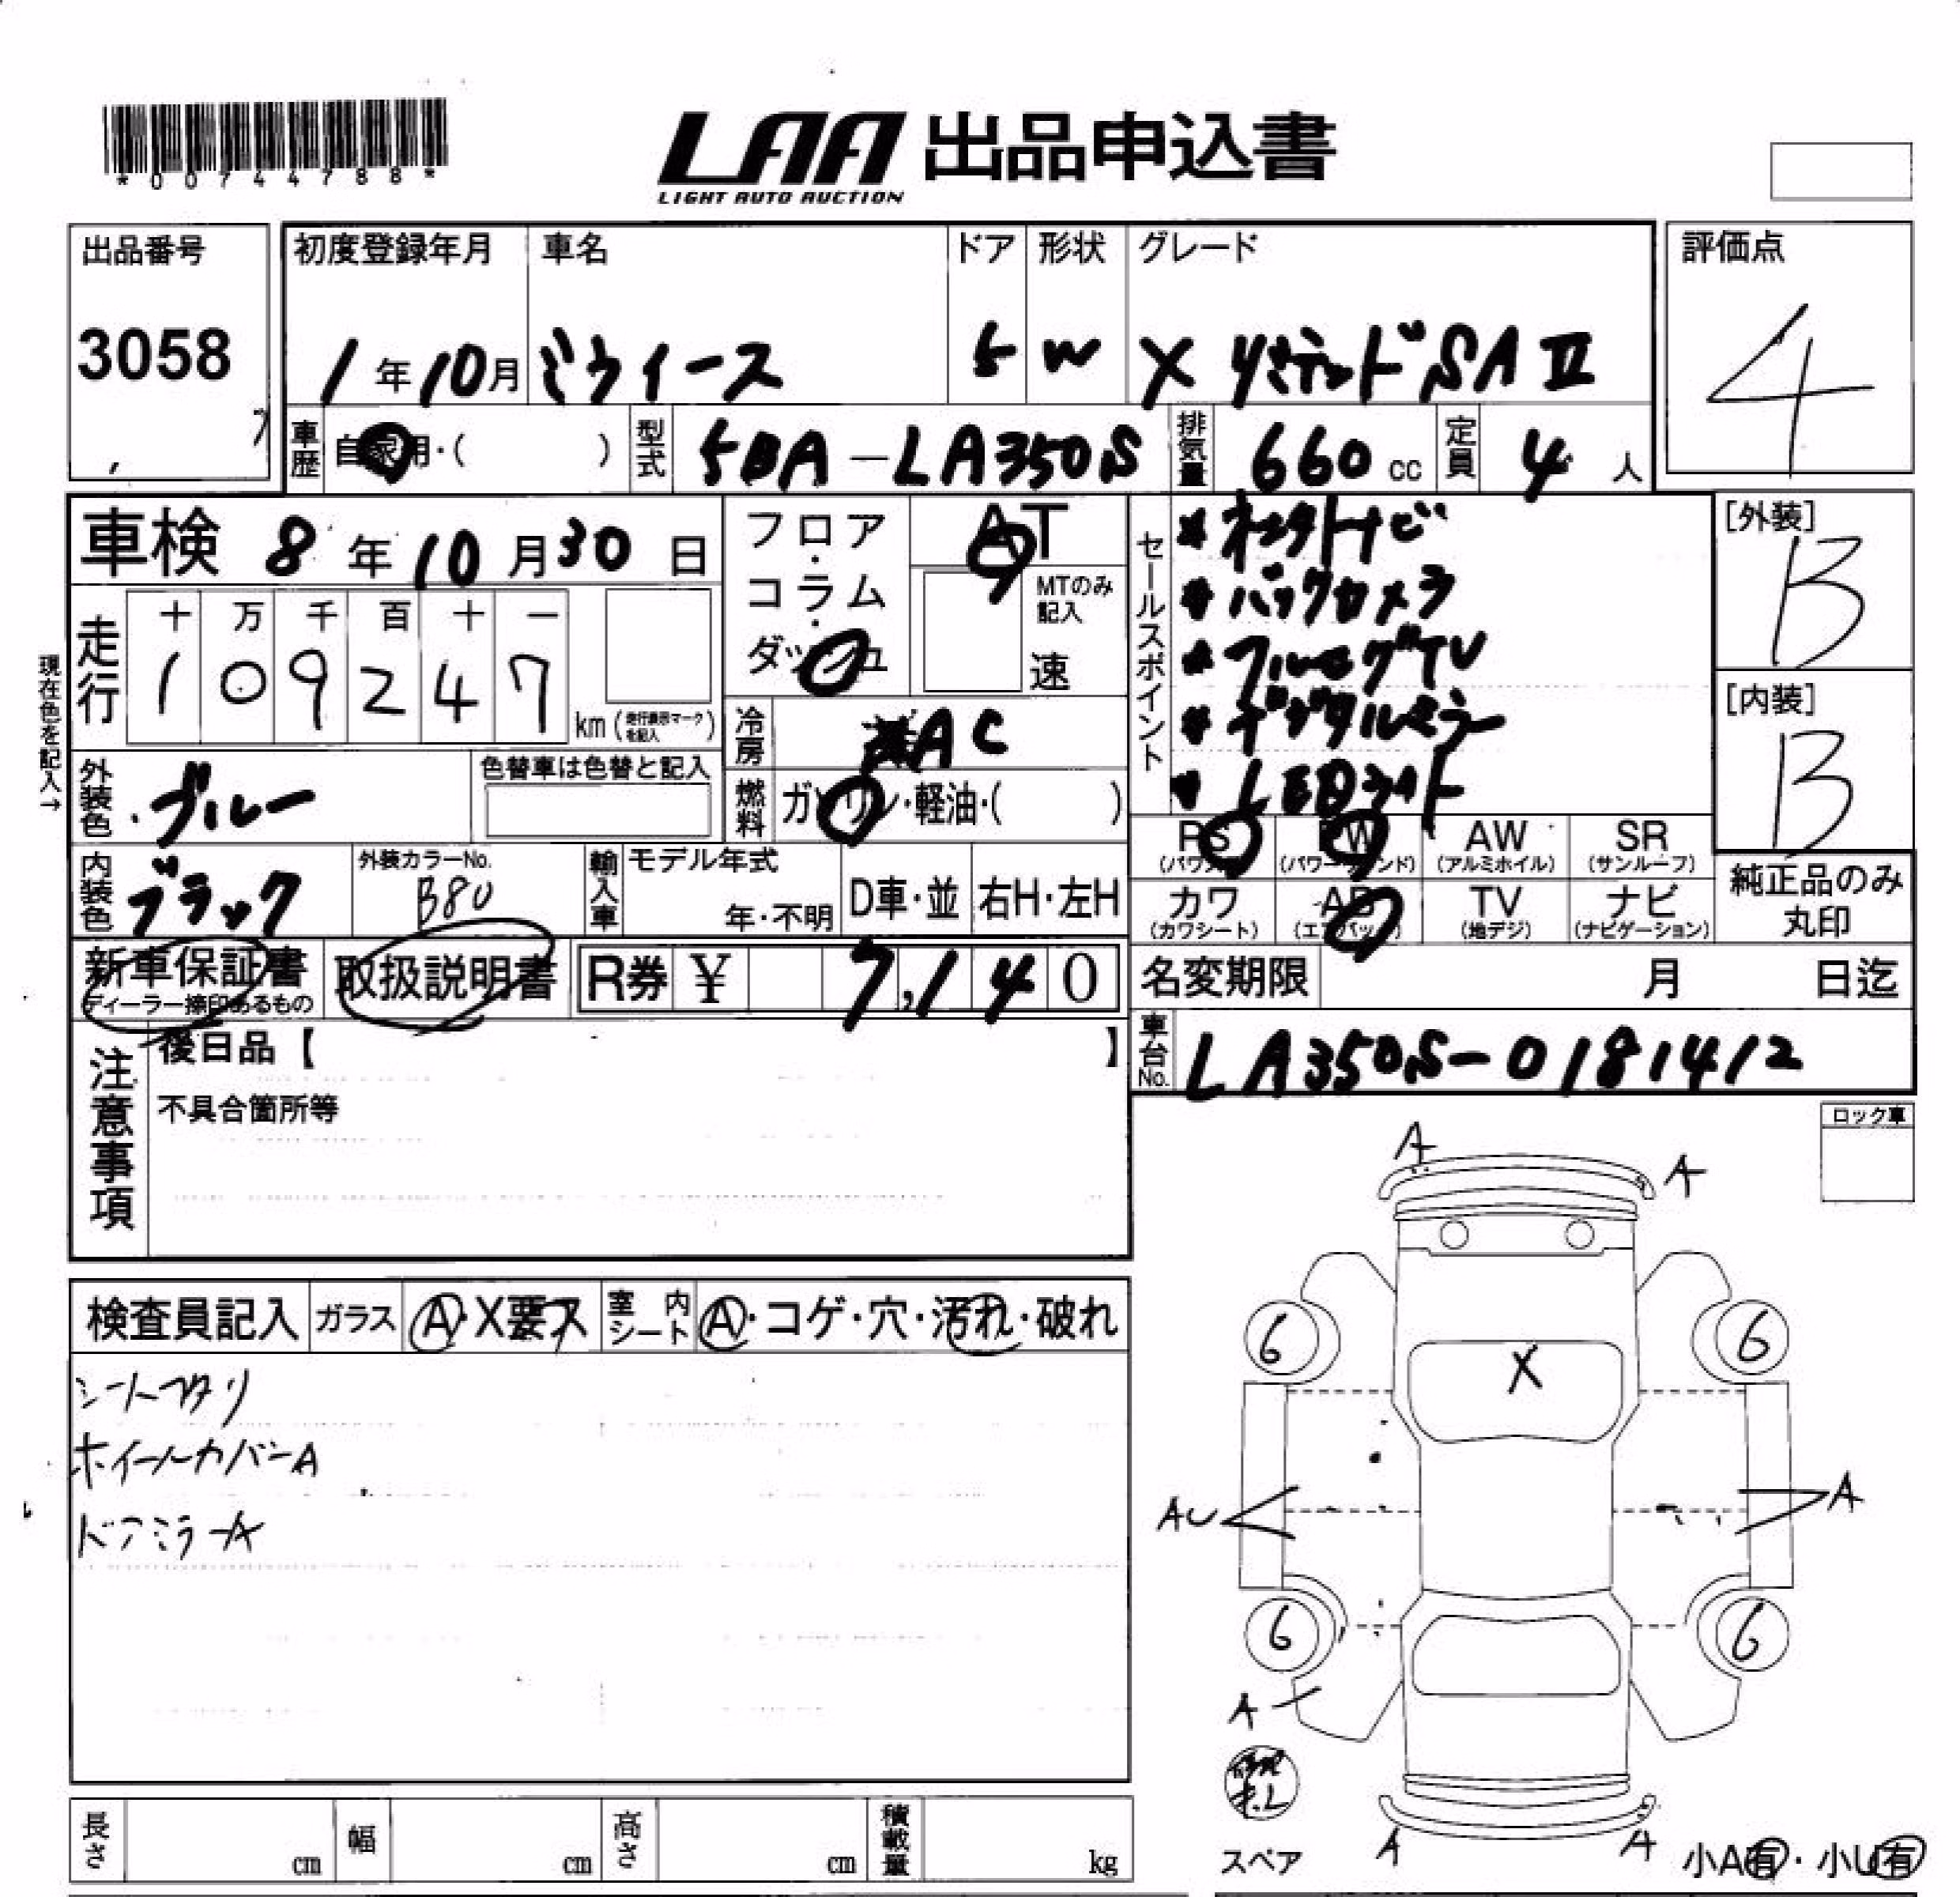 *00744788*
LAA 出品申込書
LIGHT AUTO AUCTION
出品番号
3058
初度登録年月 車名 ドア 形状 グレード
1年10月 ミライース 5 W X リミテッドSAⅢ
評価点
4
車歴 自家用・( ) 型式 5BA-LA350S 排気量 660cc 定員 4人
車検 8年10月30日
フロア・コラム・ダッシュ
AT
MTのみ記入
速
走行
十 万 千 百 十 一
1 0 9 2 4 7
km(走行表示マークを記入)
現在色を記入→
冷房 AC
外装色 ブルー
色替車は色替と記入
燃料 ガソリン・軽油・( )
内装色 ブラック
外装カラーNo.
B80
輸入車 モデル年式
年・不明
D車・並 右H・左H
セールスポイント
*バックカメラ
*フルセグTV
*デジタルミラー
*LEDライト
[外装]
B
[内装]
B
PS PW AW SR
(パワステ) (パワーウインド) (アルミホイル) (サンルーフ)
カワ AB TV ナビ
(カワシート) (エアバック) (地デジ) (ナビゲーション)
純正品のみ丸印
新車保証書
ディーラー捺印あるもの
取扱説明書
R券 ¥ 7,140
名変期限 月 日迄
車台No. LA350S-0181412
注意事項
後日品【 】
不具合箇所等
ロック車
検査員記入 ガラス A・X要ス 室内シート A・コゲ・穴・汚れ・破れ
シートヘタリ
ホイールカバーA
ドアミラーA
A
A
6 6
X
AU A
6 6
A
スペア
A A
小A有・小U有
長さ cm 幅 cm 高さ cm 積載量 kg